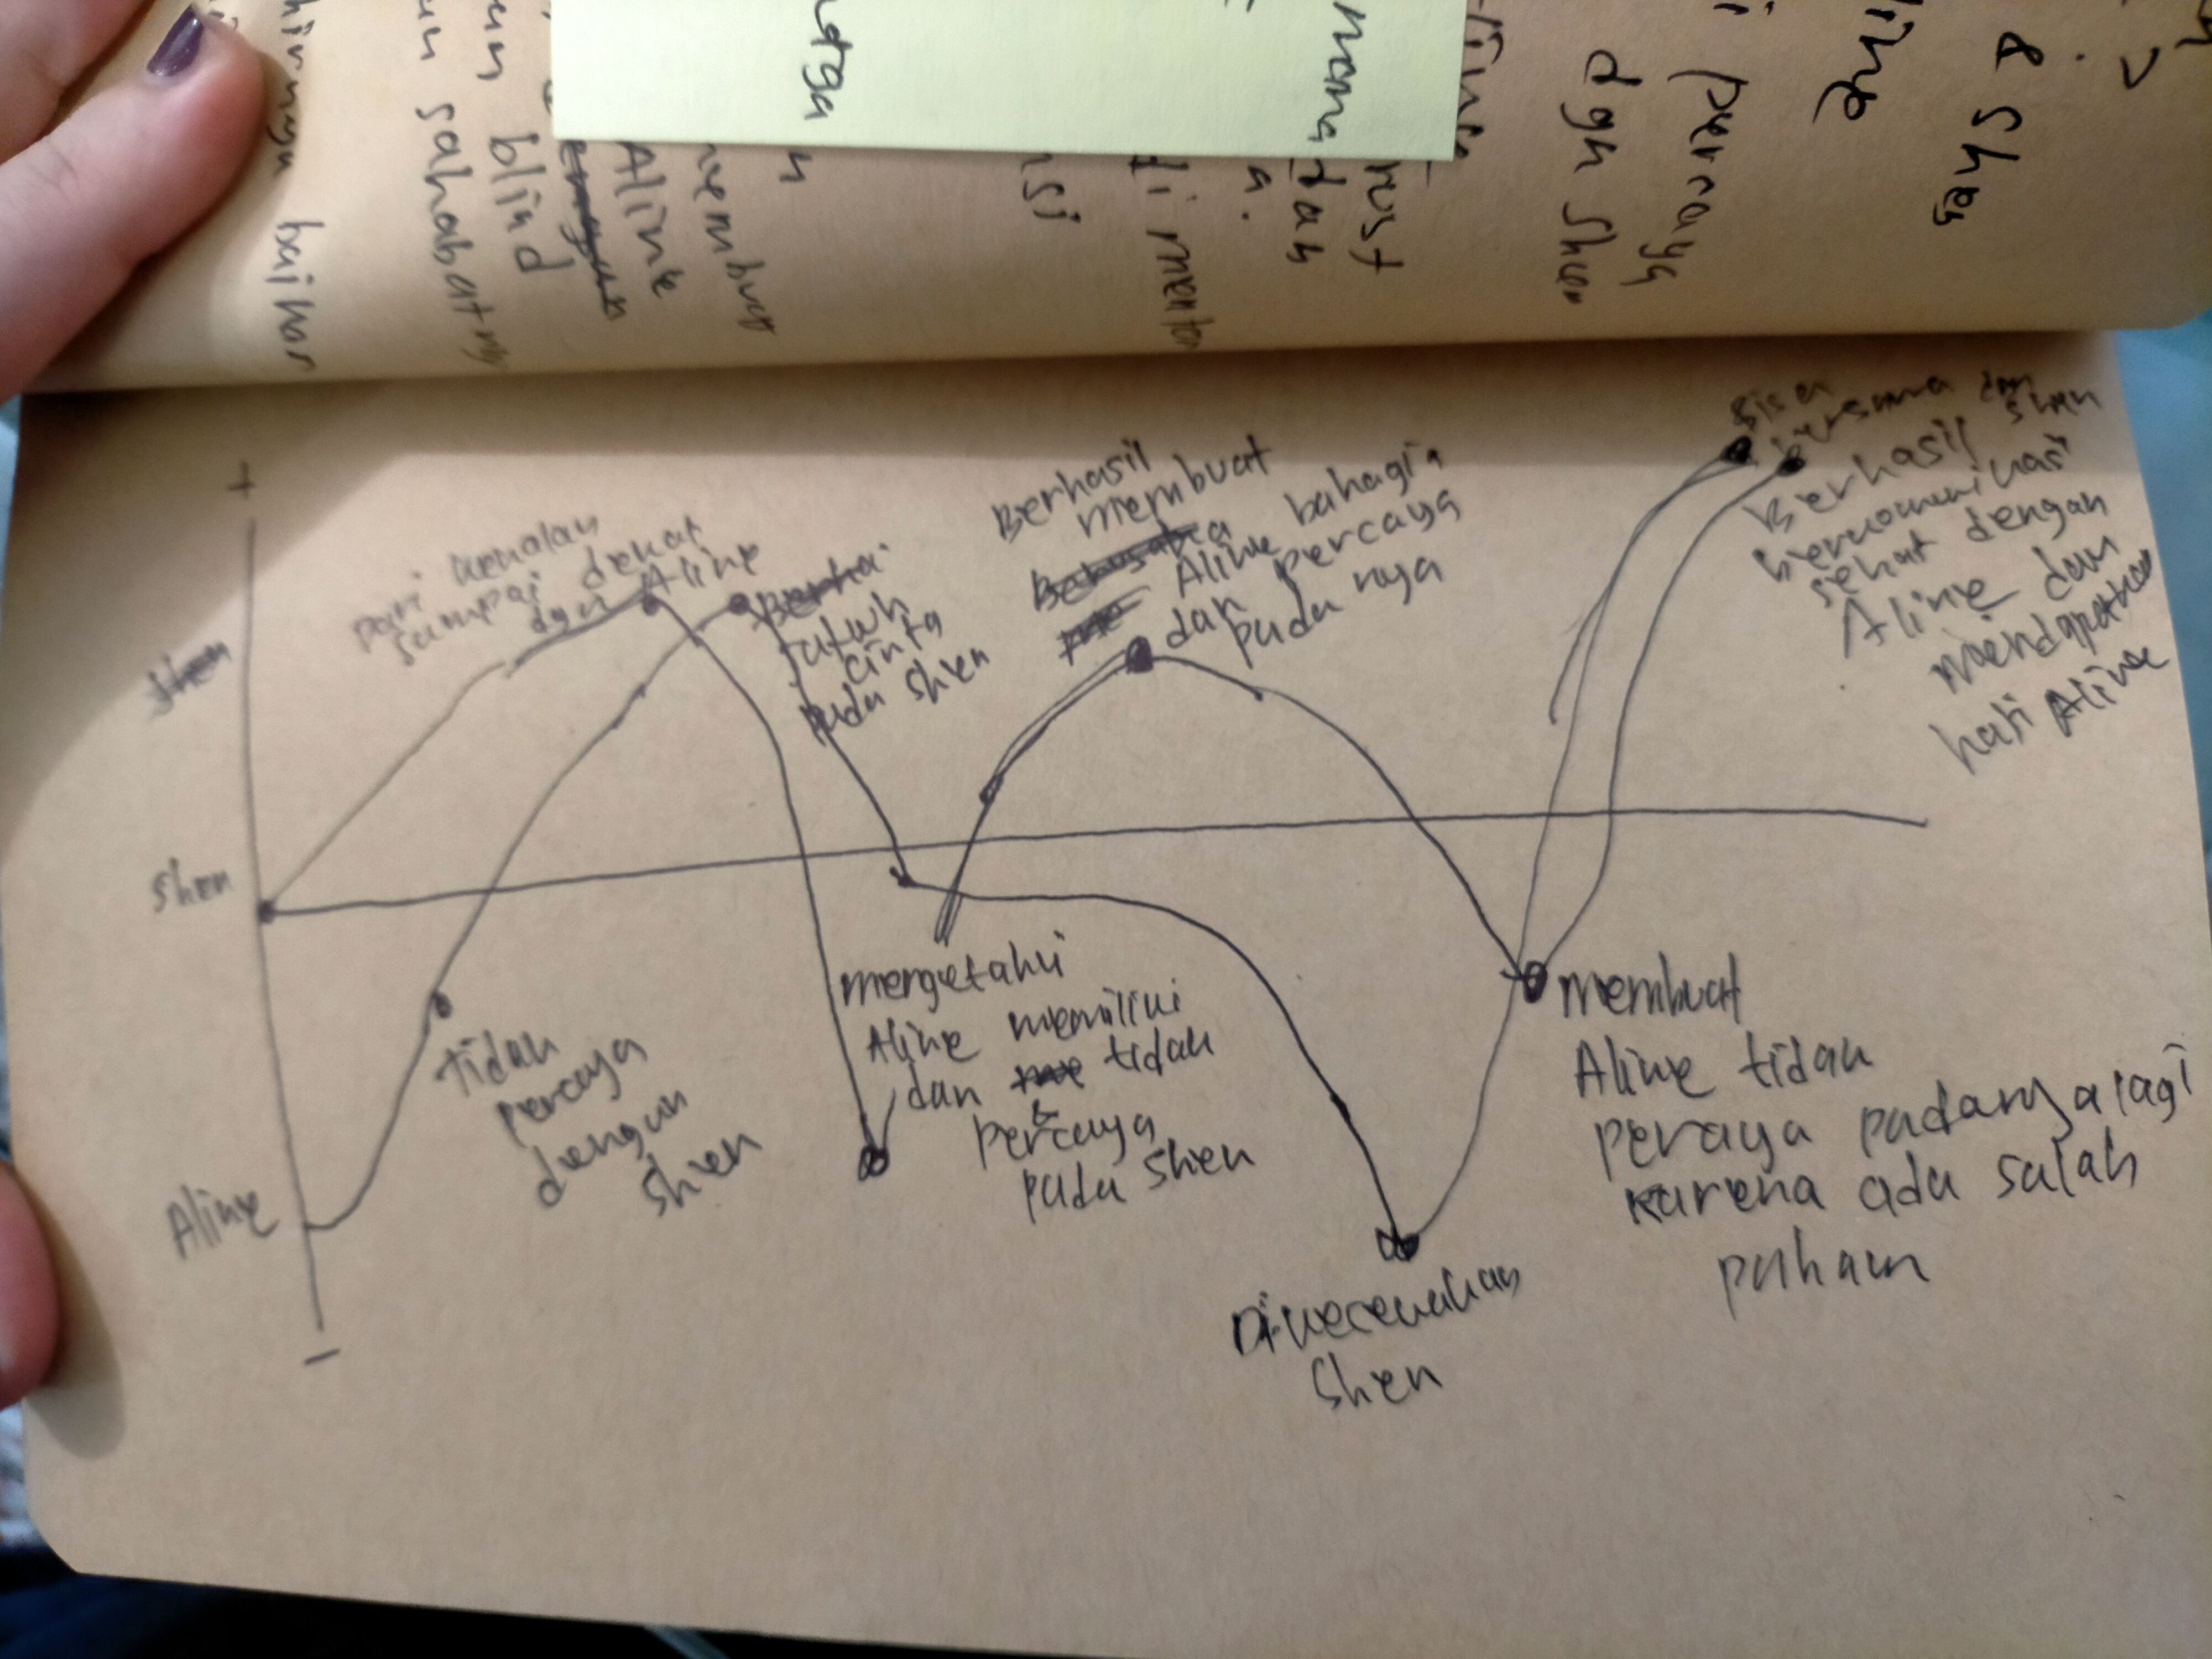 +
Shen
Shen
Aline
−
Dari kenalan
sampai dekat
dgn Aline
Berhasi
jatuh
cinta
pada Shen
tidak
percaya
dengan
Shen
mengetahui
Aline memiliki
dan tidak
percaya
pada Shen
Berhasil
membuat
Aline bahagia
dan percaya
padanya
Dikecewakan
Shen
membuat
Aline tidak
peraya padanya lagi
karena ada salah
paham
Bisa
bersama dgn
Shen
Berhasil
berkomunikasi
sehat dengan
Aline dan
mendapatkan
hati Aline
baikan
sahabatny
blind
Aline
membuat
dgn Shen
percaya
& Shen